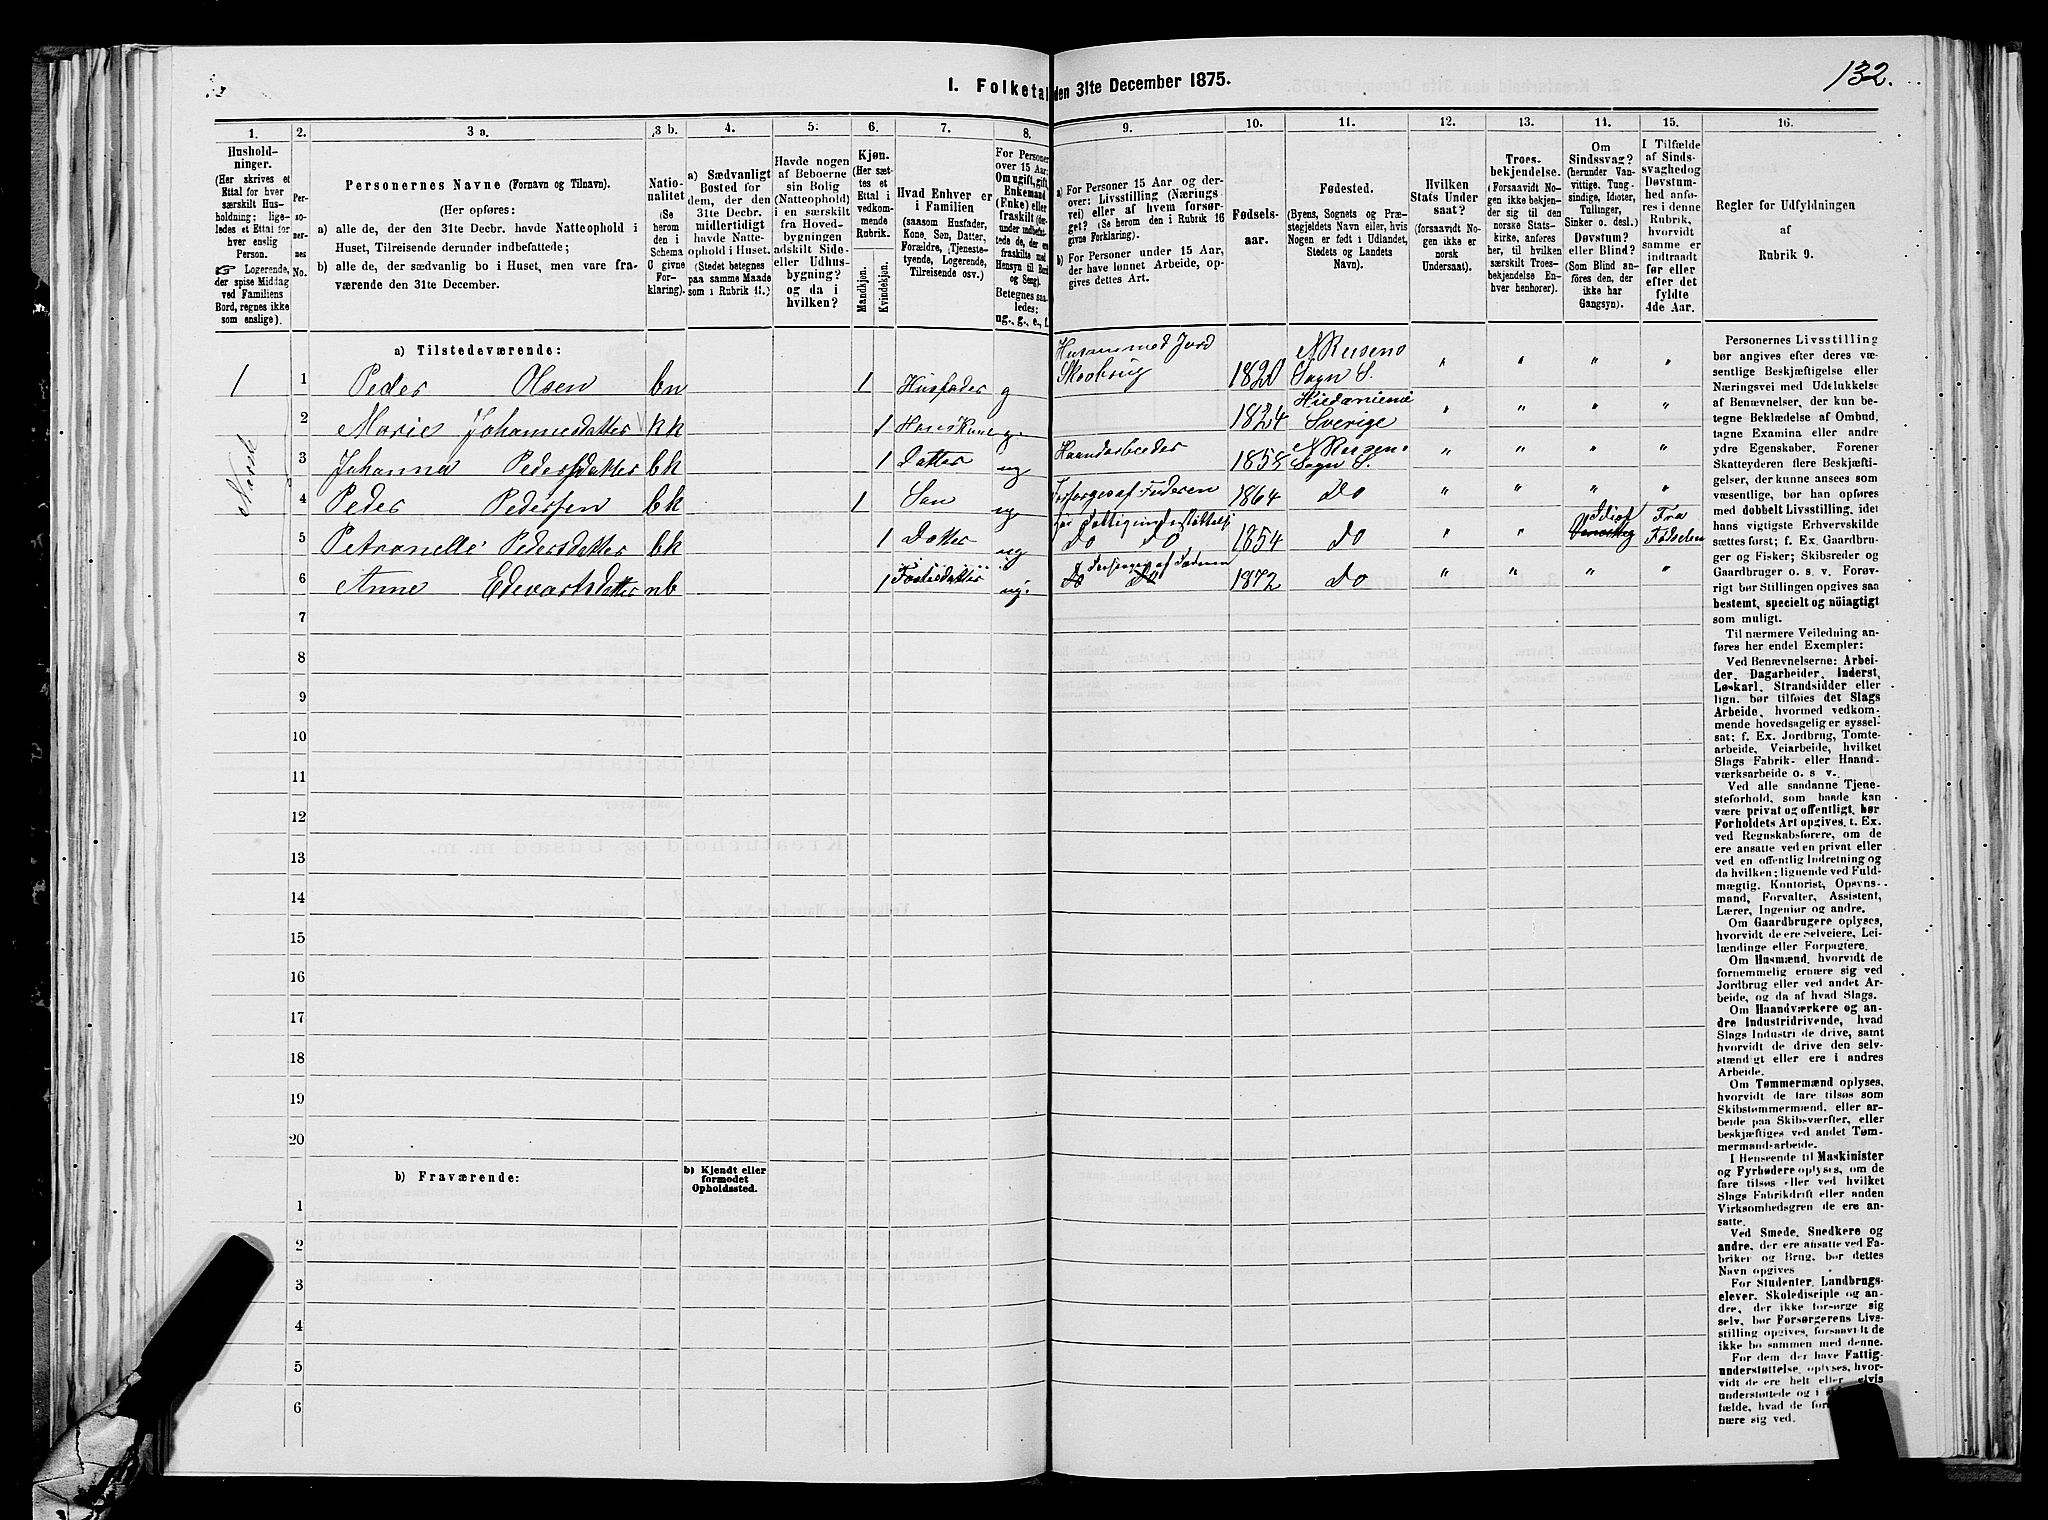 132.
I. Folketal den 31te December 1875.
1.
Hushold-
ninger.
(Her skrives et
Ettal for hver
særskilt Hus-
holdning; lige-
ledes et Ettal for
hver enslig
Person.
☞ Logerende,
der spise Middag
ved Familiens
Bord, regnes ikke
som enslige).
2.
Per-
so-
ner-
nes
No.
3 a.
Personernes Navne (Fornavn og Tilnavn).
(Her opføres:
a) alle de, der den 31te Decbr. havde Natteophold i
Huset, Tilreisende derunder indbefattede;
b) alle de, der sædvanlig bo i Huset, men vare fra-
værende den 31te December.
3 b.
Natio-
nalitet
(Se
herom
den i
Schema
C givne
For-
klaring).
4.
a) Sædvanligt
Bosted for
dem, der den
31te Decbr.
midlertidigt
havde Natte-
ophold i Huset.
(Stedet betegnes
paa samme Maade
som i Rubrik 11.)
5.
Havde nogen
af Beboerne
sin Bolig
(Natteophold)
i en særskilt
fra Hoved-
bygningen
adskilt Side-
eller Udhus-
bygning?
og da i
hvilken?
6.
Kjøn.
(Her sæt-
tes et
Ettal i
vedkom-
mende
Rubrik.
Mandkjøn.
Kvindekjøn.
7.
Hvad Enhver er
i Familien
(saasom Husfader,
Kone, Søn, Datter,
Forældre, Tjeneste-
tyende, Logerende,
Tilreisende osv.)
8.
For Personer
over 15 Aar:
Om ugift, gift,
Enkemand
(Enke) eller
fraskilt (der-
under indbefat-
tede de, der ere
fraskilte med
Hensyn til Bord
og Seng).
Betegnes saa-
ledes:
ug., g., e., f.
9.
a) For Personer 15 Aar og der-
over: Livsstilling (Nærings-
vei) eller af hvem forsør-
get? (Se herom den i Rubrik 16
givne Forklaring).
b) For Personer under 15 Aar,
der have lønnet Arbeide, op-
gives dettes Art.
10.
Fødsels-
aar.
11.
Fødested.
(Byens, Sognets og Præ-
stegjeldets Navn, eller, hvis
Nogen er født i Udlandet,
Stedets og Landets
Navn).
12.
Hvilken
Stats Under
saat?
(forsaavidt No-
gen ikke er
norsk
Undersaat).
13.
Troes-
bekjendelse.
(Forsaavidt No-
gen ikke bekjen-
der sig til den
norske Stats-
kirke, anføres
her, til hvilken
særskilt Troes-
bekjendelse En-
hver henhører).
14.
Om
Sindssvag?
(herunder Van-
vittige, Tung-
sindige, Idioter,
Tullinger,
Sinker o. desl.)
Døvstum?
eller Blind?
(Som Blind an-
føres den, der
ikke har
Gangsyn).
15.
I Tilfælde
af Sinds-
svaghed og
Døvstum-
hed anfø-
res i denne
Rubrik,
hvorvidt
samme er
indtraadt
før eller
efter det
fyldte
4de Aar.
16.
Regler for Udfyldningen
af
Rubrik 9.
a) Tilstedeværende:
1 1 Peder Olsen bn 1 Husfader g Husmand med Jord Skovbrug 1820 Sogn S. " " " "
2 Marie Johannesdatter kk 1 Hans Kone g 1824 Sverige " " " "
3 Johanna Pedersdatter bk 1 Datter ug 1858 Sogn S. " " " "
4 Peder Pedersen bk 1 Søn ug Forsørges af Faderen 1864 Do " " " "
5 Petronelle Pedersdatter bk 1 Datter ug Do Do 1854 Do " " Idiot Fra Fødselen
6 Anne Edevartsdatter nb 1 Fosterdatter ug. Do Do Forsørges af Faderen 1872 Do " " " "
7
8
9
10
11
12
13
14
15
16
17
18
19
20
b) Fraværende:
b) Kjendt eller
formodet
Opholdssted.
1
2
3
4
5
6
Personernes Livsstilling
bør angives efter deres væ-
sentlige Beskjæftigelse eller
Næringsvei med Udelukkelse
af Benævnelser, der kun be-
tegne Beklædelse af Ombud,
tagne Examina eller andre
ydre Egenskaber. Forener
Skatteyderen flere Beskjæfti-
gelser, der kunne ansees som
væsentlige, bør han opføres
med dobbelt Livsstilling, idet
hans vigtigste Erhvervskilde
sættes først; f. Ex. Gaardbru-
ger og Fisker; Skibsreder og
Gaardbruger o. s. v. Forøv-
rigt bør Stillingen opgives saa
bestemt, specielt og nöiagtigt
som muligt.
Til nærmere Veiledning an-
føres her endel Exempler:
Ved Benævnelserne: Arbei-
der, Dagarbeider, Inderst,
Løskarl, Strandsidder eller
lign. bør tilføies det Slags
Arbeide, hvormed vedkom-
mende hovedsagelig er syssel-
sat; f. Ex. Jordbrug, Tomte-
arbeide, Veiarbeide, hvilket
Slags Fabrik- eller Haand-
værksarbeide o. s. v.
Ved alle saadanne Tjene-
steforhold, som baade kan
være privat og offentligt, bør
Forholdets Art opgives, t. Ex.
ved Regnskabsførere, om de
ere ansatte ved en privat eller
ved en offentlig Indretning og
da hvilken; lignende ved Fuld-
mægtig, Kontorist, Opsyns-
mand, Forvalter, Assistent,
Lærer, Ingeniør og andre.
Om Gaardbrugere oplyses,
hvorvidt de ere Selveiere, Lei-
lændinge eller Forpagtere.
Om Husmænd, hvorvidt de
fornemmelig ernære sig ved
Jordbrug eller ved andet Ar-
beide, og da af hvad Slags.
Om Haandværkere og an-
dre Industridrivende, hvad
Slags Industri de drive, samt
hvorvidt de drive den selv-
stændigt eller ere i andres
Arbeide.
Om Tømmermænd oplyses,
hvorvidt de fare tilsøs som
Skibstømmermænd, eller ar-
beide paa Skibsværfter, eller
beskjæftiges ved andet Tøm-
mermandsarbeide.
I Henseende til Maskinister
og Fyrbødere oplyses, om de
fare tilsøs eller ved hvilket
Slags Fabrikdrift eller anden
Virksomhedsgren de ere an-
satte.
Ved Smede, Snedkere og
andre, der ere ansatte ved Fa-
briker og Brug, bør dettes
Navn opgives
For Studenter, Landbrugs-
elever, Skoledisciple og an-
dre, der ikke forsørge sig
selv, bør Forsørgerens Livs-
stilling opgives, forsaavidt de
ikke bo sammen med denne.
For dem, der have Fattig-
understøttelse, oplyses, hvor-
vidt de ere helt eller
understøttede og i
fælde, hvad de
nære sig ved.